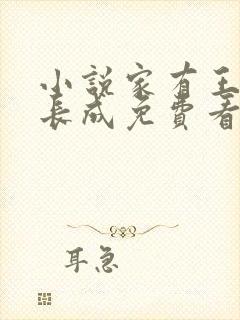 小說家有王
長成免費看
耳急